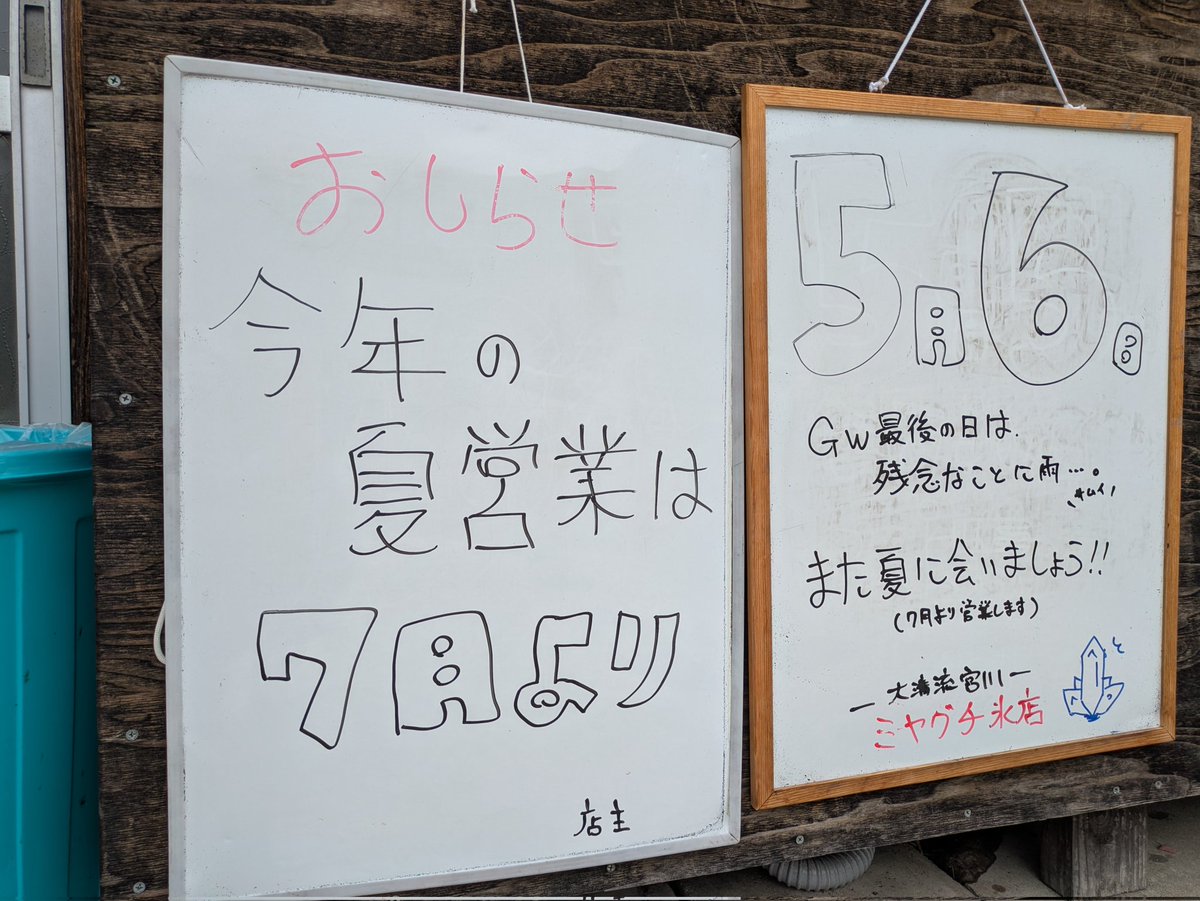 おしらせ
今年の
夏営業は
7月より
店主
5月6日
GW最後の日は、
残念なことに雨…。
サムイ
また夏に会いましょう!!
(7月より営業します)
ー大清流宮川ー
ミヤグチ氷店